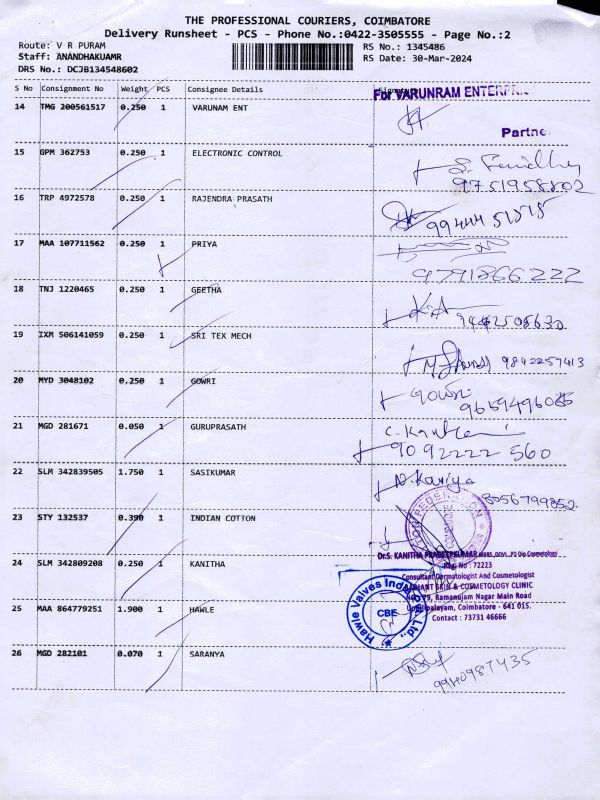 THE PROFESSIONAL COURIERS, COIMBATORE
Delivery Runsheet - PCS - Phone No.:0422-3505555 - Page No.:2
Route: V R PURAM
RS No.: 1345486
Staff: ANANDHAKUAMR
RS Date: 30-Mar-2024
DRS No.: DCJB134548602
S No Consignment No Weight PCS Consignee Details Signature
For VARUNRAM ENTERPRISE
14 TMG 200561517 0.250 1 VARUNAM ENT
Partner
15 GPM 362753 0.250 1 ELECTRONIC CONTROL
9751958802
16 TRP 4972578 0.250 1 RAJENDRA PRASATH
99444 51515
17 MAA 107711562 0.250 1 PRIYA
9791866222
18 TNJ 1220465 0.250 1 GEETHA
19 IXM 506141059 0.250 1 SRI TEX MECH
9842257413
20 MYD 3048102 0.250 1 GOWRI
21 MGD 281671 0.050 1 GURUPRASATH
9092222 560
22 SLM 342839505 1.750 1 SASIKUMAR
N. Kaviya
8056799852
23 STY 132537 0.390 1 INDIAN COTTON
Dr.S. KANITHA PRADEEPKUMAR
24 SLM 342809208 0.250 1 KANITHA
Reg. No : 72223
Consultant Dermatologist And Cosmetologist
SKIN & COSMETOLOGY CLINIC
25 MAA 864779251 1.900 1 HAWLE
Ramanujam Nagar Main Road
Coimbatore - 641 015.
Contact : 73731 46666
Hawle Valves India Ltd.,
CBE
26 MGD 282101 0.070 1 SARANYA
9940987435